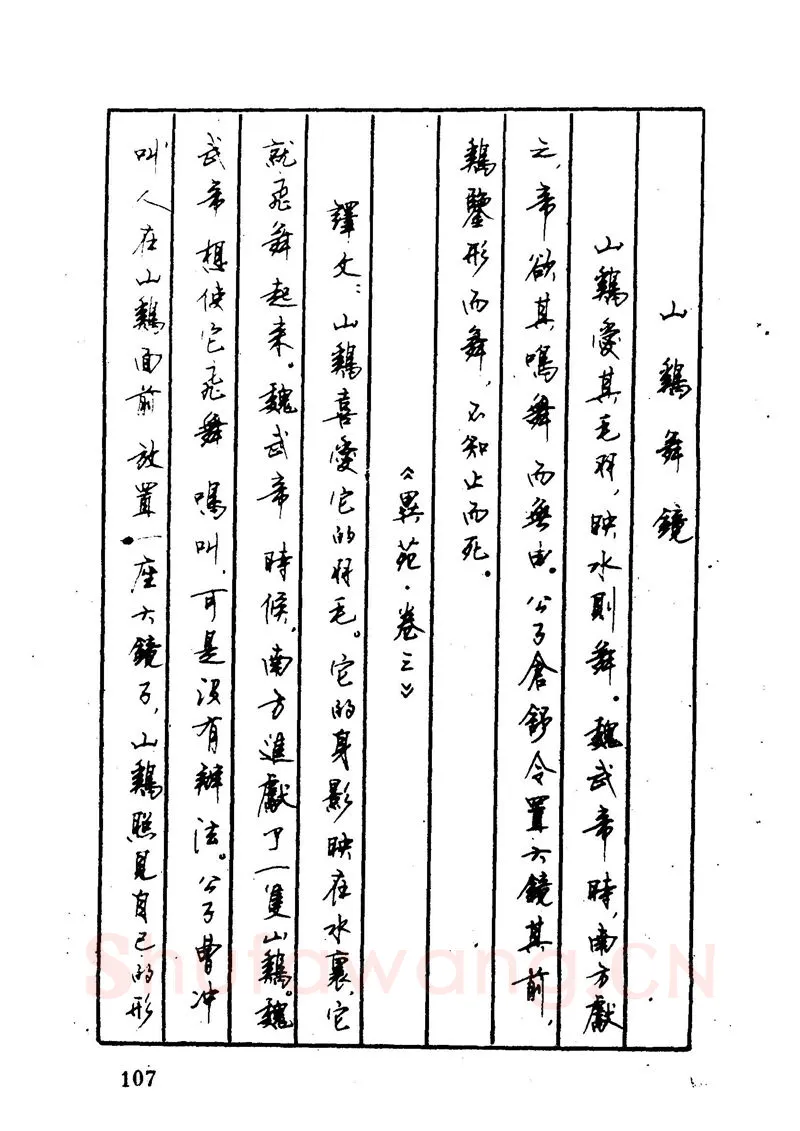 山鷄舞鏡
山鷄愛其毛羽，映水則舞。魏武帝時，南方獻
之，帝欲其鳴舞而無由。公子倉舒令置大鏡其前，
鷄鑒形而舞，不知止而死。
《異苑·卷三》
譯文：山鷄喜愛它的羽毛。它的身影映在水裏，它
就飛舞起来。魏武帝時候，南方進獻了一隻山鷄。魏
武帝想使它飛舞鳴叫，可是没有辦法。公子曹冲
叫人在山鷄面前放置一座大鏡子，山鷄照見自己的形
107
Shufawang.CN